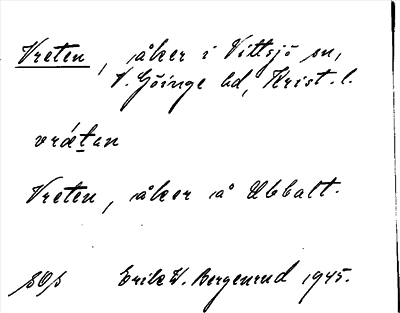 Vreten, åker i Vittsjö sn,
V. Göinge hd, Krist. l.
vrǽtan
Vreten, åker å Ubbalt.
Erik W. Bergenrud 1945.